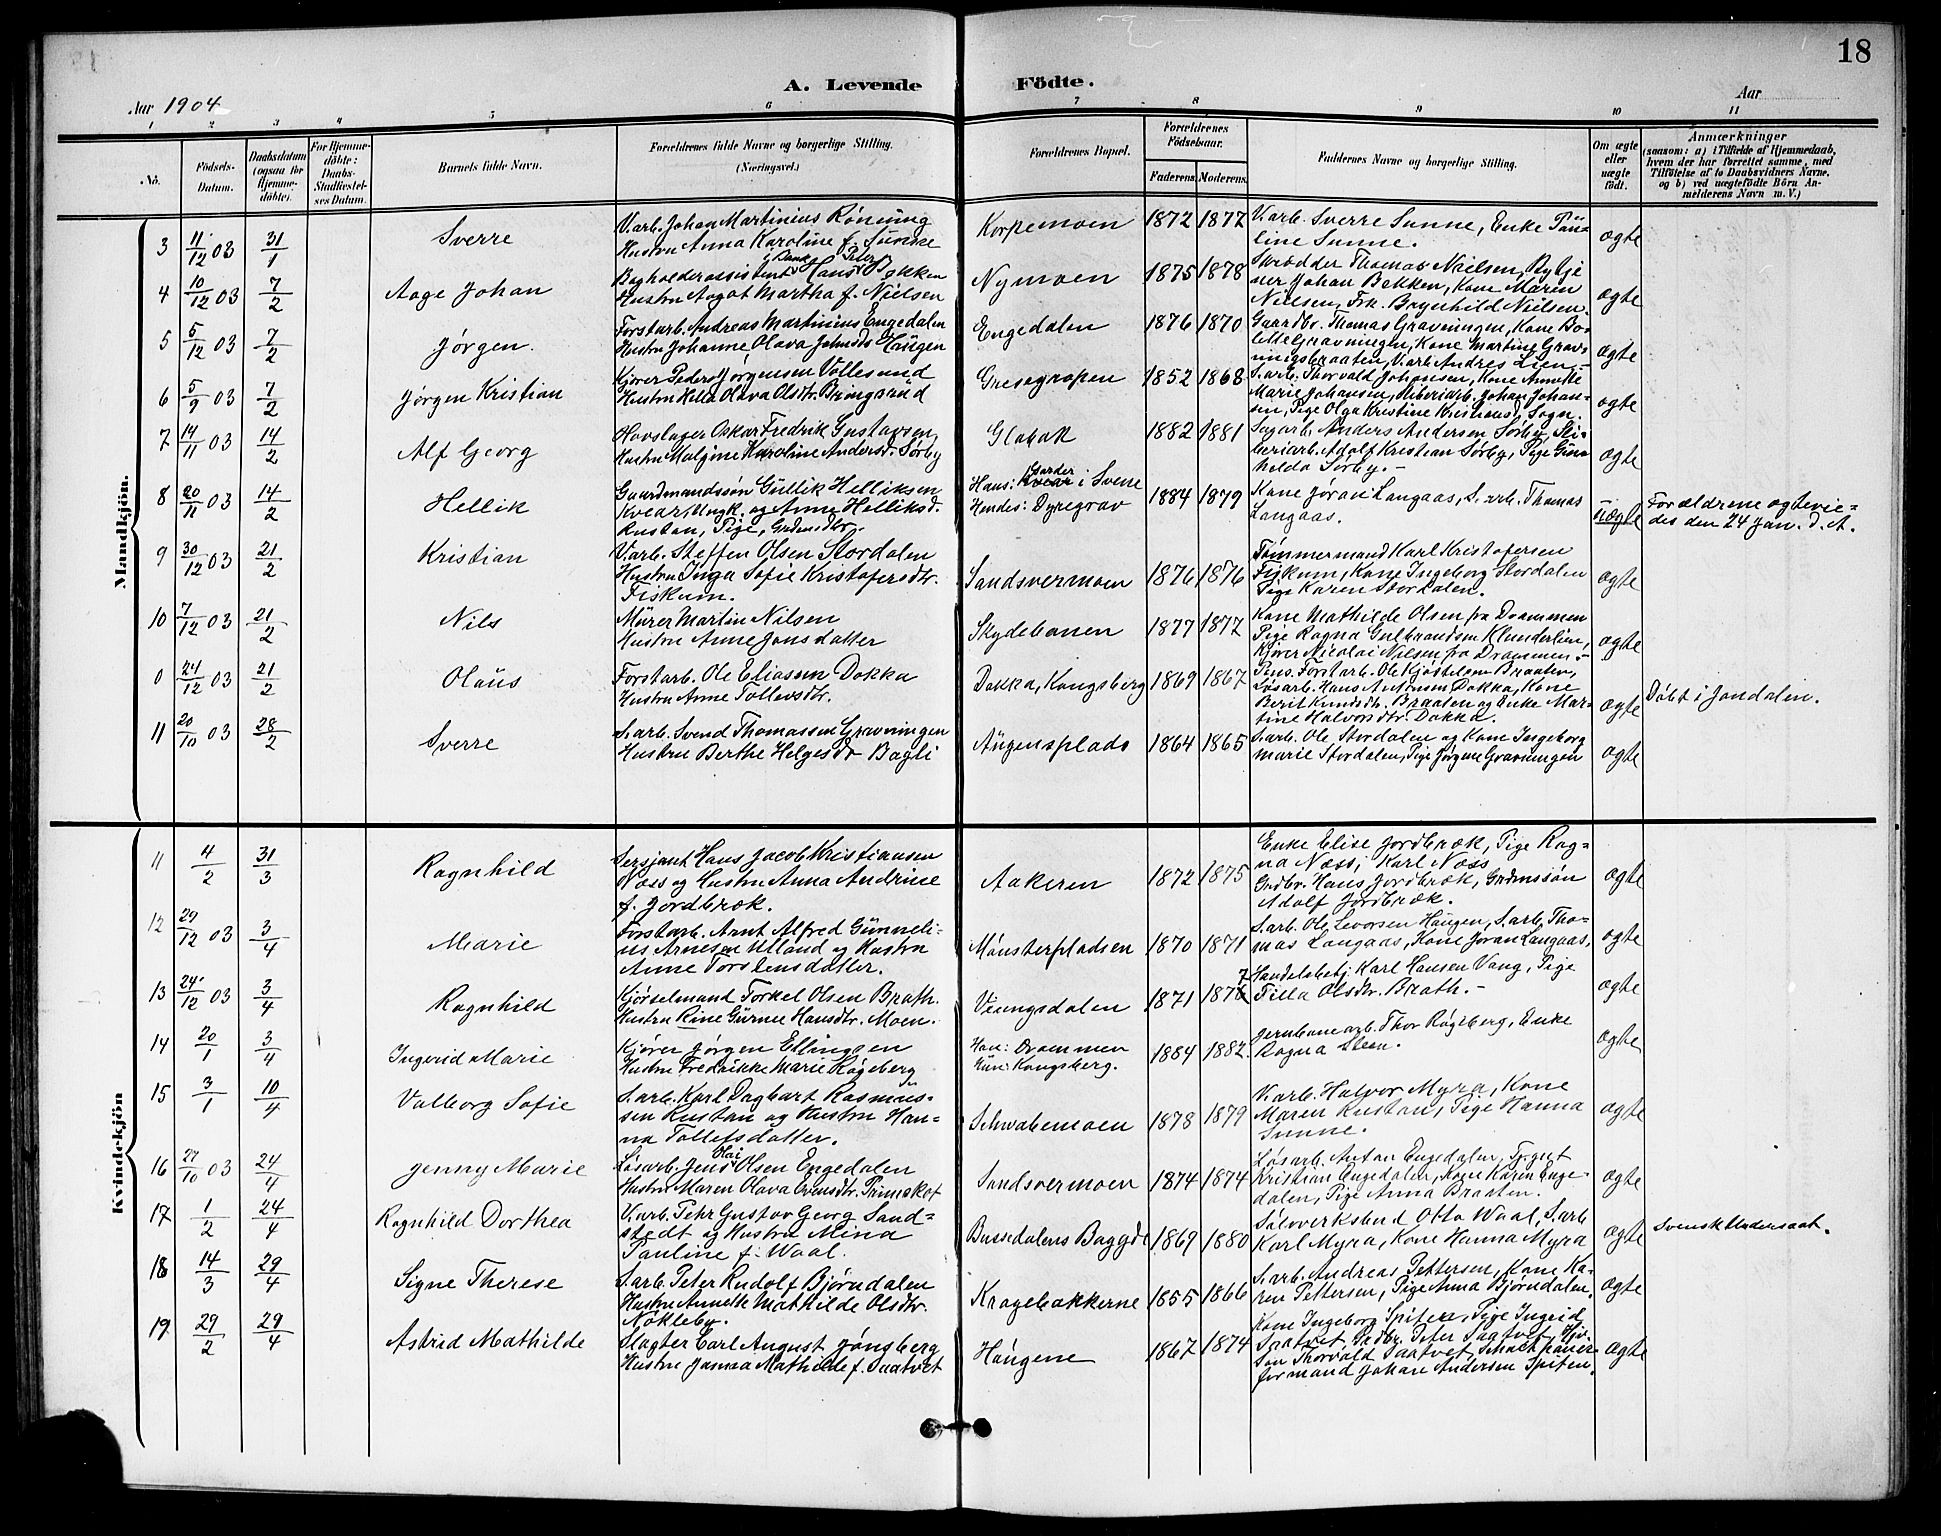 18
A. Levende Födte.
Aar 1904
Aar
1 2 3 4 5 6 7 8 9 10 11
No.
Födsels-Datum.
Daabsdatum (ogsaa for Hjemme-döbte).
For Hjemme-döbte: Daabs-Stadfæstel-ses Datum.
Barnets fulde Navn.
Forældrenes fulde Navne og borgerlige Stilling. (Næringsvei.)
Forældrenes Bopæl.
Forældrenes Födselsaar.
Faderens Moderens
Faddernes Navne og borgerlige Stilling.
Om ægte eller uægte födt.
Anmærkninger
(saasom: a) i Tilfælde af Hjemmedaab, hvem der har forrettet samme, med Tilföielse af to Daabsvidners Navne, og b) ved uægtefödte Börn Anmelderens Navn m. V.)
Mandkjön.
3 11/12 03 31/1 Sverre
V.arb. Johan Martinius Rønning
Hustru Anna Karoline f. Sunne
Korpemoen 1872 1877
V.arb. Sverre Sunne, Enke Pau-
line Sunne.
ægte
4 10/12 03 7/2 Aage Johan
Bogholderassistent i Bank Hans Peter Bekken
Hustru Aagot Martha f. Nielsen
Nymoen 1875 1878
Skrædder Thomas Nielsen, Bytje
ner Johan Bekken, Kone Maren
Nielsen, Frk. Brynhild Nielsen.
ægte
5 5/12 03 7/2 Jørgen.
Forstarb. Andreas Martinius Engedalen
Hustru Johanne Olava Johnsds Haugen
Engedalen 1876 1870
Gaardbr. Thomas Gravningen, Kone Bo-
lette Gravningen, Kone Martine Grav-
ningsbraaten, V.arb. Andres Lien.-
ægte
6 5/9 03 7/2 Jørgen Kristian
Kjører Peder Jørgensen Vollesund
Hustru Helle Olava Olsdtr. Bringsrud
Gresegropen 1852 1868
S.arb. Thorvald Johansen, Kone Annette
Marie Johansen, Sliberiarb. Johan Johan-
sen, Pige Olga Kristine Kristiansd. Sogn.
ægte
7 14/11 03 14/2 Alf Georg
Hovslager Oskar Fredrik Gustavsen
Hustru Malfine Karoline Andersd. Sørby
Glabak 1882 1881
Sagarb. Anders Andersen Sørby, Sli-
beriarb. Adolf Kristian Sørby, Pige Gun-
hilda Sørby.-
ægte
8 20/11 03 14/2 Hellik
Gaardmandssøn Gullik Helliksen
Kvear, Ungk. og Anne Helliksd.
Rustan, Pige, Grdmdtr.
Hans: Kvear i Svene
Hendes: Dyregrav
1884 1879
Kone Jøran Langaas, S.arb. Thomas
Langaas.
uægte
Forældrene ægtevie-
des den 24 Jan. d. A.
9 30/12 03 21/2 Kristian
V.arb. Steffen Olsen Stordalen
Hustru Inga Sofie Kristofersdtr.
Fiskum.
Sandsvermoen 1876 1876
Tømmermand Karl Kristofersen
Fiskum, Kone Ingeborg Stordalen
Pige Karen Stordalen.
ægte
10 7/12 03 21/2 Nils
Murer Martin Nilsen
Hustru Anne Jonsdatter
Skydebanen 1877 1877
Kone Mathilde Olsen fra Drammen
Pige Ragna Gulbrandsen Klunderlien,
Kjører Nicolai Nilsen fra Drammen.-
ægte
0 24/12 03 21/2 Olaus
Forstarb. Ole Eliassen Dokka
Hustru Anne Tollevsdtr.
Dokka, Kongsberg 1869 1867
Pens. Forstarb. Ole Kjøstelsen Braaten,
Løsarb. Hans Antonsen Dokka, Kone
Berit Knudsdtr. Braaten og Enke Mar-
tine Halvorsdtr. Dokka.
ægte
Døbt i Jondalen.
11 20/10 03 28/2 Sverre
S.arb. Svend Thomassen Gravningen
Hustru Berthe Helgesdtr Bagli
Augensplads 1864 1865
S.arb. Ole Stordalen og Kone Ingeborg
Marie Stordalen, Pige Jørgine Gravningen
ægte
Kvindekjön
11 4/2 31/3 Ragnhild
Sersjant Hans Jacob Kristiansen
Næss og Hustru Anna Andrine
f. Jordbræk.
Aakeren 1872 1875
Enke Elise Jordbræk, Pige Rag-
na Næss, Karl Næss
Grdbr. Hans Jordbræk, Grdmssøn
Adolf Jordbræk.
ægte
12 29/12 03 3/4 Marie
Forstarb. Arnt Alfred Gunneli-
us Arnesen Utland og Hustru
Anne Torstensdatter.
Münsterpladsen 1870 1871
S.arb. Ole Levorsen Haugen, S.arb. Tho-
mas Langaas, Kone Jøran Langaas.
ægte
13 24/12 03 3/4 Ragnhild
Kjørselmand Torkel Olsen Brath.
Hustru Rine Gurine Hansdtr. Moen.
Veungsdalen 1871 1877
Handelsbetj. Karl Hansen Vang, Pige
Tilla Olsdtr. Brath.-
ægte
14 20/1 3/4 Ingerid Marie
Kjører Jørgen Ellingsen
Hustru Fredrikke Marie Røgeberg
Han: Drammen
Hun: Kongsberg.
1884 1882.
Jernbanearb. Thor Røgeberg, Enke
Ragna Steen.
ægte
15 3/1 10/4 Valborg Sofie
S.arb. Karl Dagbart Rasmus-
sen Rustan og Hustru Han-
na Tollefsdatter.
Schwabemoen 1878 1879
V.arb. Halvor Myra, Kone
Maren Rustan, Pige Hanna
Sunne.
ægte
16 27/10 03 24/4 Jenny Marie
Løsarb. Jens Olai Olsen Engedalen
Hustru Maren Olava Evensdtr. Pinnakof
Sandsvermoen 1874 1874
Løsarb. Anton Engedalen, Tjgut
Kristian Engedalen, Kone Karen Enge-
dalen, Pige Anna Braaten.
ægte
17 1/2 24/4 Ragnhild Dorthea
V.arb. Pehr Gustav Georg Sand-
stedt og Hustru Mina
Pauline f. Waal.
Bussedalens Baggde 1869 1880
Sølvverksbud Otto Waal, S.arb
Karl Myra, Kone Hanna Myra
ægte
Svensk Undersaat.
18 14/3 29/4 Signe Therese
S.arb. Peter Rudolf Bjørndalen
Hustru Annette Mathilde Olsdtr.
Nökleby.
Kragebakkerne 1855 1866
S.arb. Andreas Pettersen, Kone Ka-
ren Pettersen, Pige Anna Bjørndalen.
ægte
19 29/2 29/4 Astrid Mathilde
Slagter Carl August Jøngberg
Hustru Janna Mathilde f. Saatvet
Haugene 1867 1874
Kone Ingeborg Spiten, Pige Ingrid
Saatvet, Grdbr. Peter Saatvet,
Søn Thorvald Saatvet,
formand Johan Andersen Spiten.
ægte